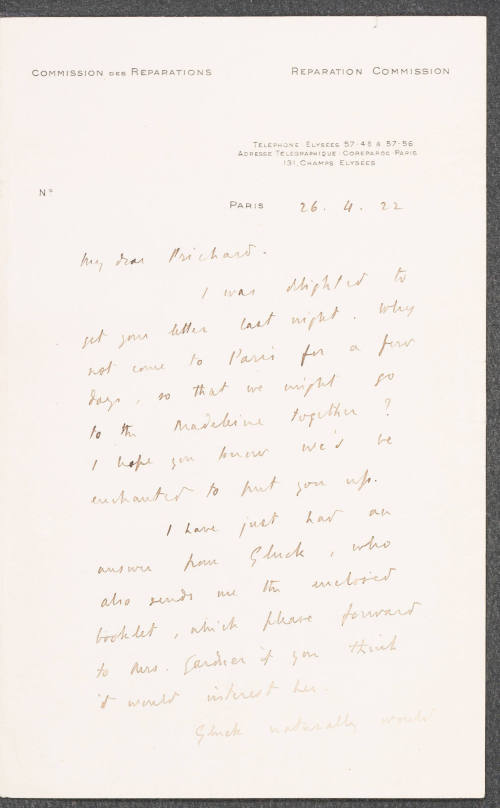 COMMISSION DES REPARATIONS
REPARATION COMMISSION
TÉLÉPHONE: ELYSÉES 57-48 & 57-56
ADRESSE TÉLÉGRAPHIQUE: COREPAROC-PARIS
131, CHAMPS ELYSÉES
N°
PARIS 26. 4. 22
My dear Prichard.
I was delighted to
get your letter last night. Why
not come to Paris for a few
days, so that we might go
to the Madeleine together?
I hope you know we'd be
enchanted to put you up.
I have just had an
answer from Gluck, who
also sends me the enclosed
booklet, which please forward
to Mrs. Gardner if you think
it would interest her.
Gluck naturally would